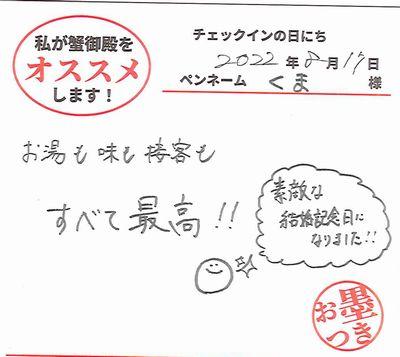 私が蟹御殿を
オススメ
します！
チェックインの日にち
2022年8月17日
ペンネーム くま 様
お湯も味も接客も
すべて最高!!
素敵な
結婚記念日に
なりました!!
お墨つき